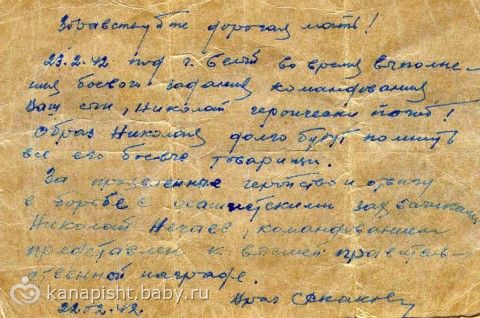 Здравствуйте дорогая мать!
23.2.42 под г. Белый во время выполне-
ния боевого задания командования
Ваш сын, Николай героически погиб!
Образ Николая долго будут помнить
все его боевые товарищи.
За проявленные геройство и отвагу
в борьбе с фашистскими захватчиками
Николай, командованием
представлен к высшей правитель-
ственной награде.
22.02.42.
kanapisht.baby.ru